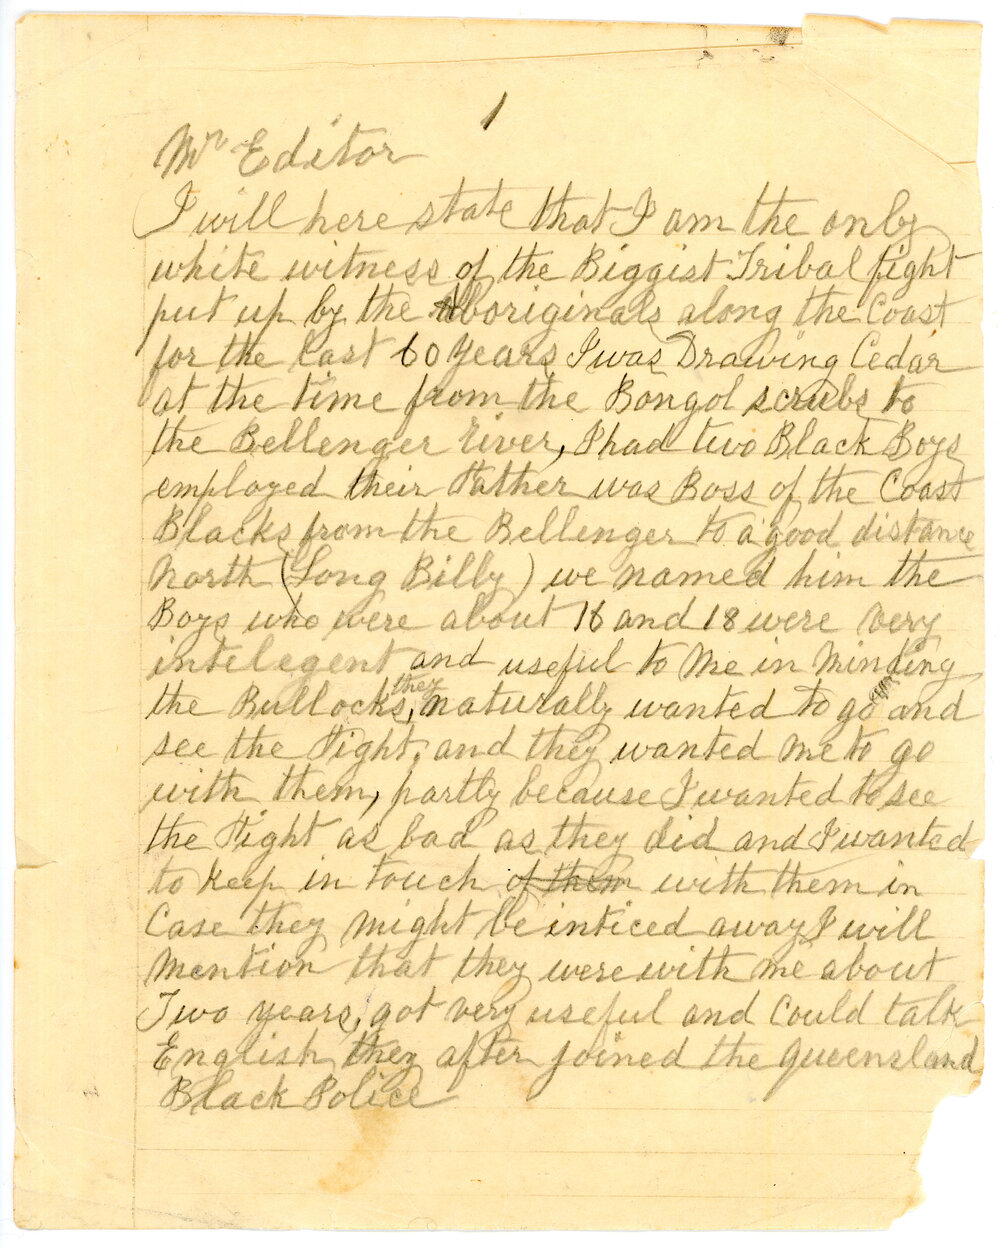 1
Mr Editor
I will here state that I am the only
white witness of the Biggist Tribal fight
put up by the Aboriginals along the Coast
for the last 60 years, I was Drawing Cedar
at the time from the Bongol scrubs to
the Bellenger River, I had two Black Boys
employed their Father was Boss of the Coast
Blacks from the Bellenger to a good distance
North (Long Billy) we named him the
Boys who were about 16 and 18 were very
intelegent and useful to me in minding
the Bullocks, they naturally wanted to go and
see the Fight, and they wanted me to go
with them, partly because I wanted to see
the Fight as bad as they did and I wanted
to keep in touch of them with them in
Case they might be inticed away I will
Mention that they were with me about
Two years, got very useful and Could talk
English, they after joined the queensland
Black Police